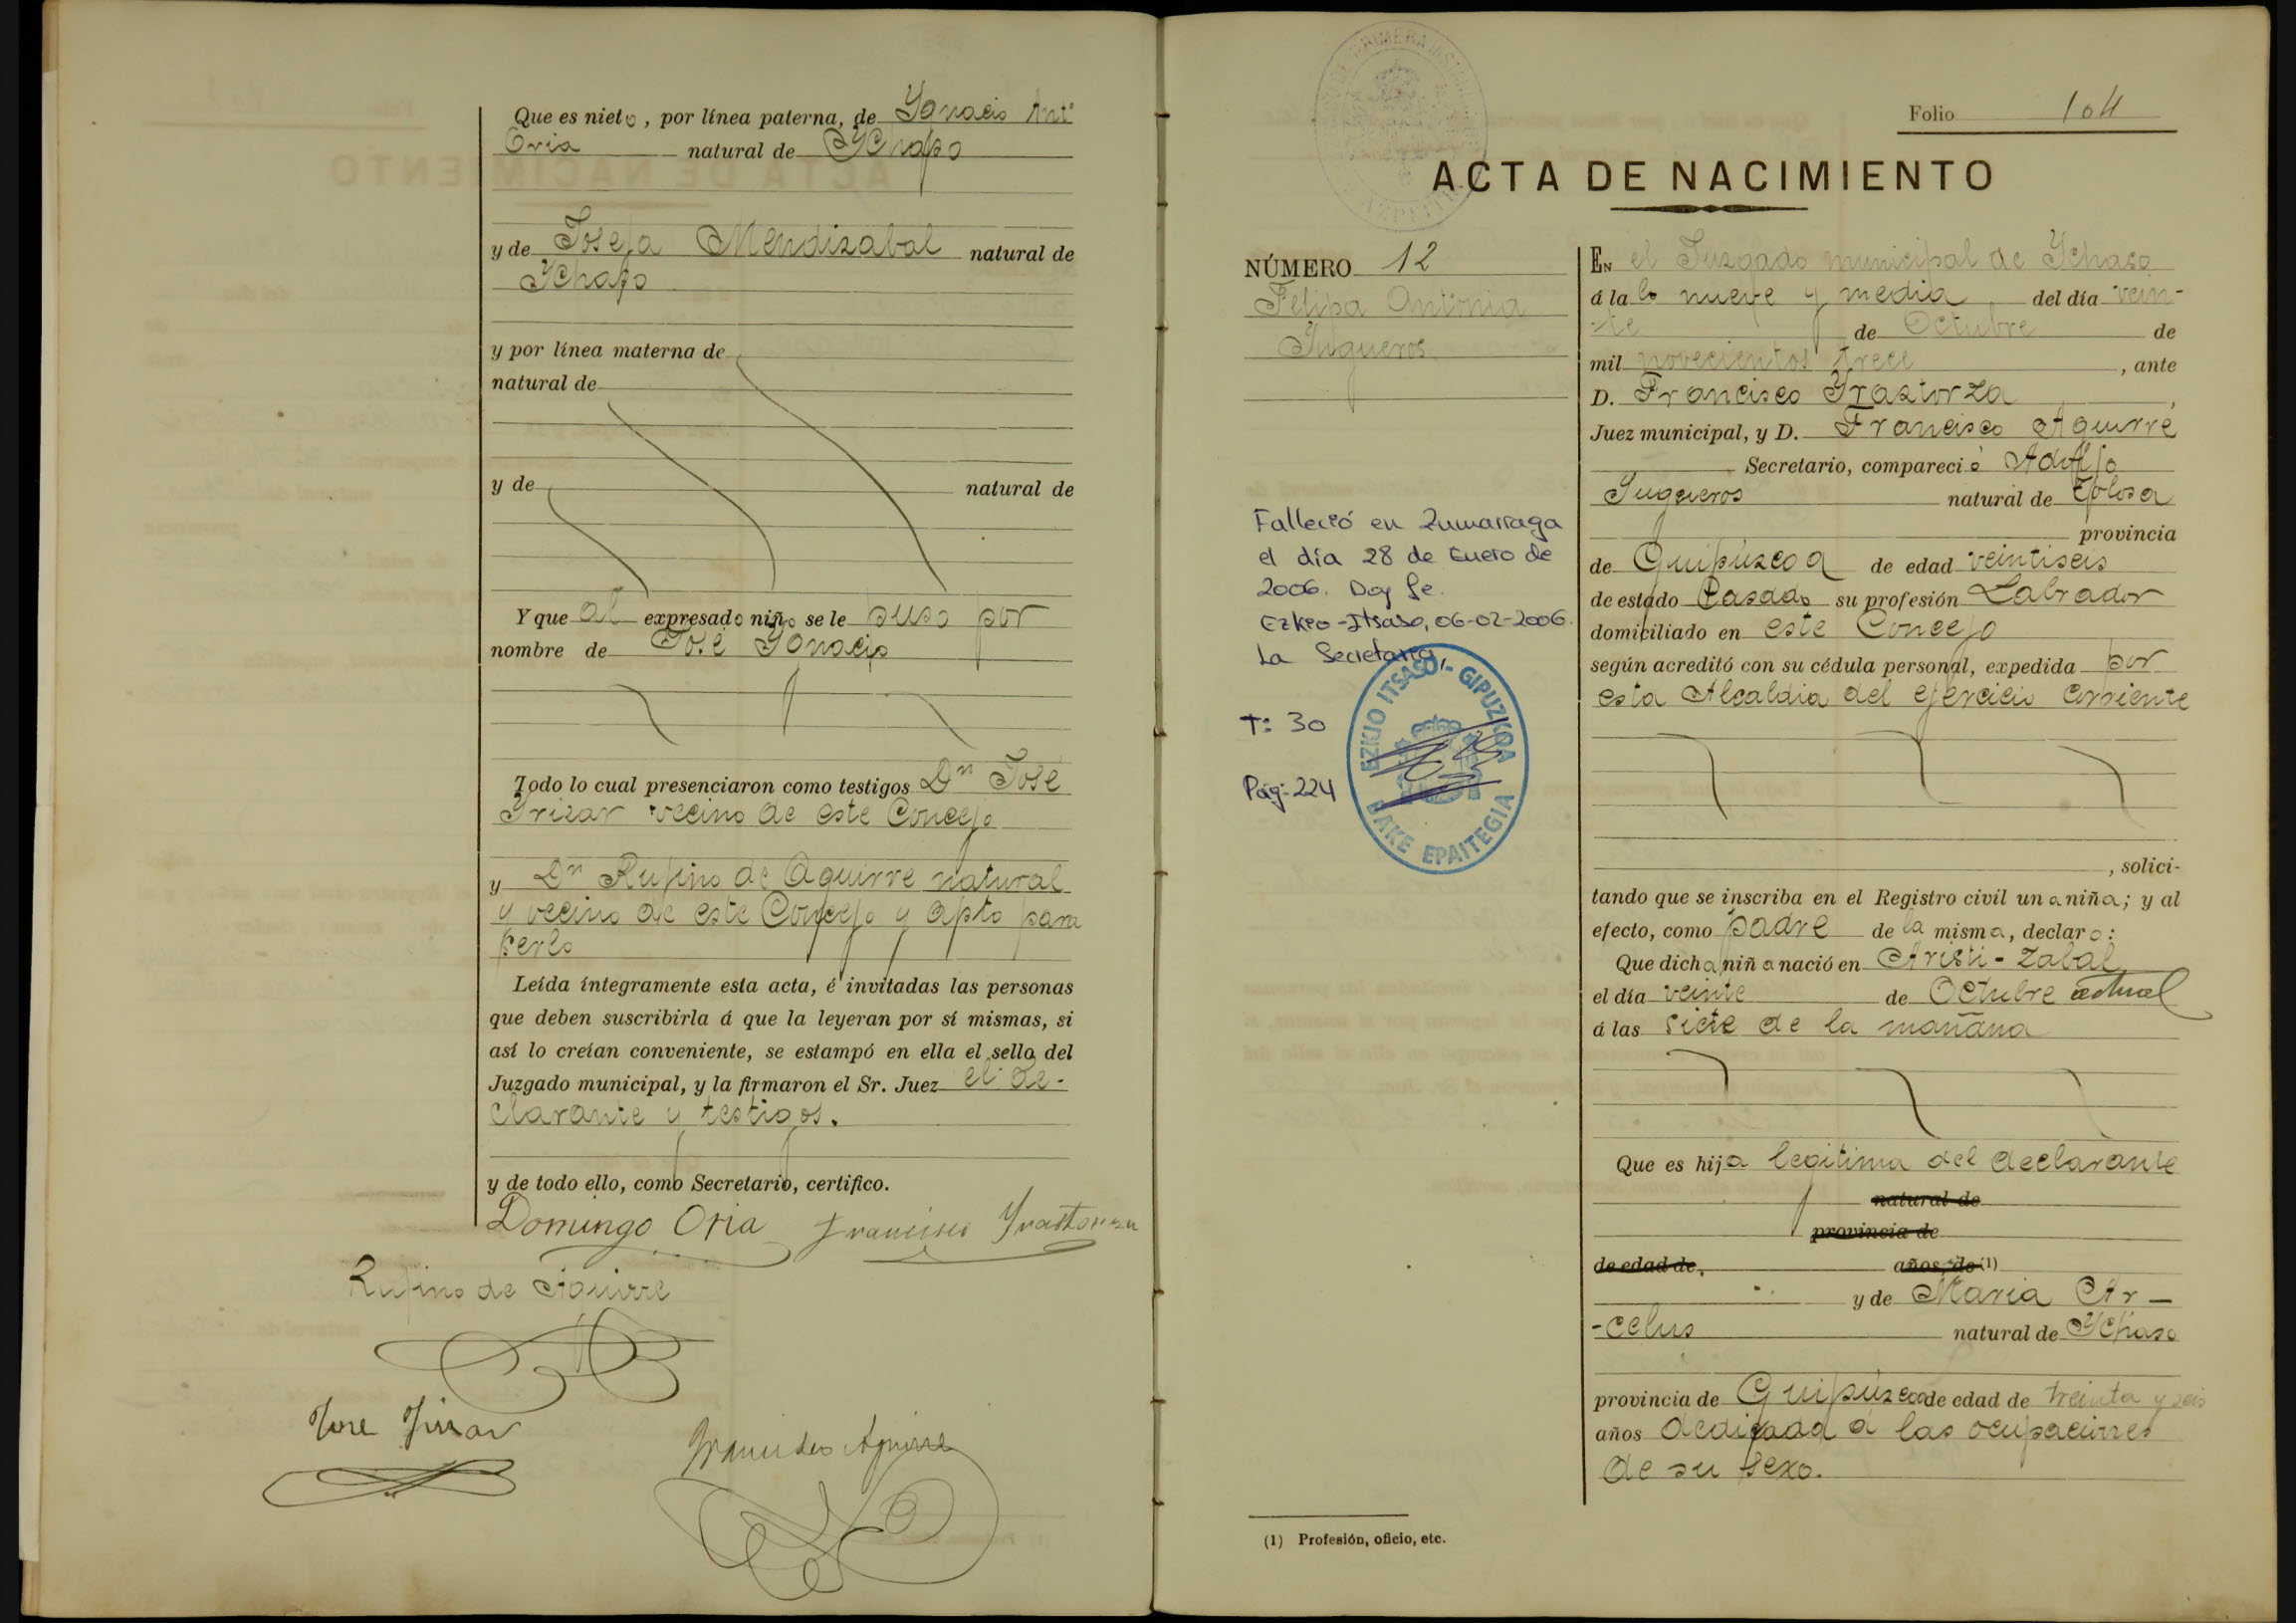 Que es nieto, por línea paterna, de Ygnacio Antº
Oria natural de Ychaso
y de Josefa Mendizabal natural de
Ychaso
y por línea materna de
natural de
y de natural de
Y que al expresado niño se le puso por
nombre de José Ygnacio
Todo lo cual presenciaron como testigos Dn José
Yrizar vecino de este Concejo
y Dn Rufino de Aguirre natural
y vecino de este Concejo y apto para
serlo
Leída íntegramente esta acta, é invitadas las personas
que deben suscribirla á que la leyeran por sí mismas, si
así lo creían conveniente, se estampó en ella el sello del
Juzgado municipal, y la firmaron el Sr. Juez el de-
clarante y testigos.
y de todo ello, como Secretario, certifico.
Domingo Oria Francisco Yrastorza
Rufino de Aguirre
Jose Yrizar
Francisco Aguirre
Folio 104
ACTA DE NACIMIENTO
NÚMERO 12
Felipa Antonia
Jugueros
Falleció en Zumarraga
el día 28 de Enero de
2006. Doy fe.
Ezkio-Itsaso, 06-02-2006.
La Secretaria,
T: 30
Pág: 224
EZKIO ITSASO - GIPUZKOA
BAKE EPAITEGIA
EN el Juzgado municipal de Ychaso
á las nueve y media del día vein-
-te de Octubre de
mil novecientos trece, ante
D. Francisco Yrastorza,
Juez municipal, y D. Francisco Aguirre
Secretario, compareció Adolfo
Jugueros natural de Tolosa
provincia
de Guipúzcoa de edad veintiseis
de estado Casado su profesión Labrador
domiciliado en este Concejo
según acreditó con su cédula personal, expedida por
esta Alcaldia del ejercicio corriente
, solici-
tando que se inscriba en el Registro civil una niña; y al
efecto, como padre de la misma, declaro:
Que dicha niña nació en Aristi-Zabal
el día veinte de Octubre actual
á las siete de la mañana
Que es hija legitima del declarante
natural de
provincia de
de edad de, años, de (1)
y de Maria Ar-
-celus natural de Ychaso
provincia de Guipúzcoa de edad de treinta y seis
años dedicada a las ocupaciones
de su sexo.
(1) Profesión, oficio, etc.